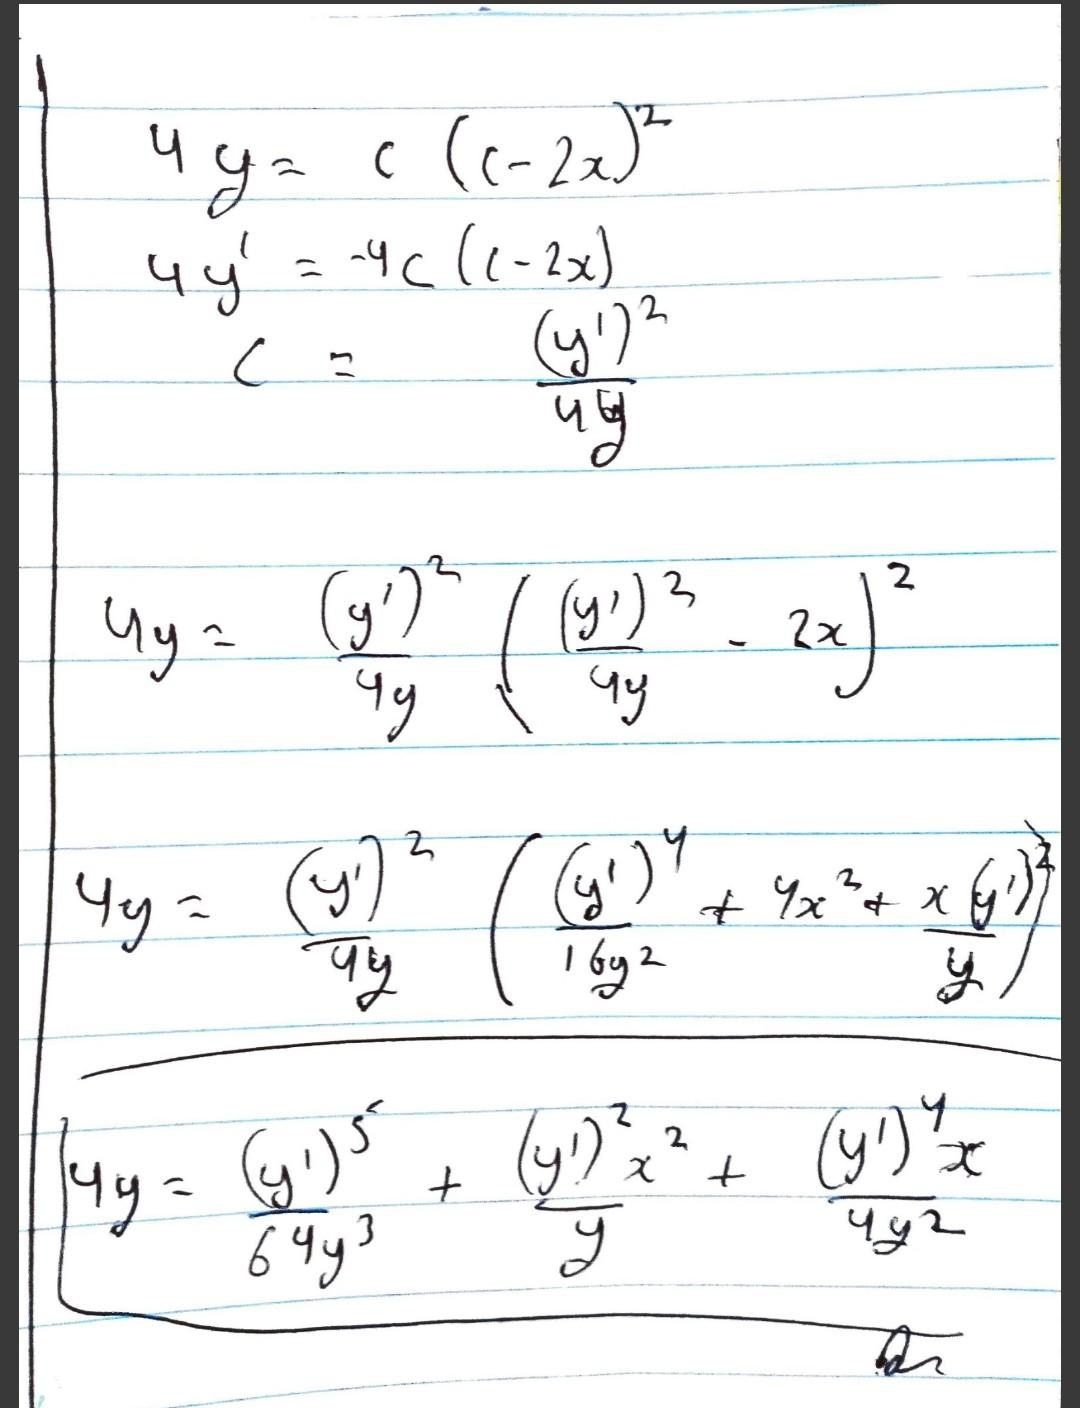 4y = c (c - 2x)²
4y' = -4c (c - 2x)
c = (y')² / 4y
4y = (y')² / 4y ( (y')² / 4y - 2x )²
4y = (y')² / 4y ( (y')⁴ / 16y² + 4x² + x(y')² / y )
4y = (y')⁵ / 64y³ + (y')² x² / y + (y')⁴ x / 4y²